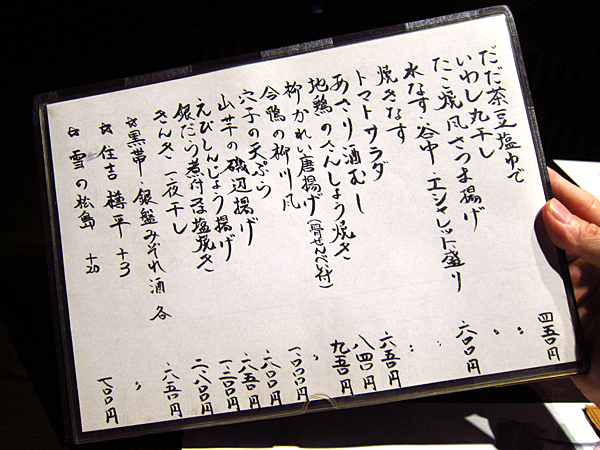 だだ茶豆塩ゆで 四五〇円
いわし丸干し 〃
たこ焼風さつま揚げ 〃
水なす・谷中 エシャレット盛り 六〇〇円
焼きなす 〃
トマトサラダ 〃
あさり酒むし 六五〇円
地鶏のさんしょう焼き 八四〇円
柳かれい唐揚げ(骨せんべい付) 九五〇円
合鴨の柳川風 〃
穴子の天ぷら 一.〇〇〇円
山芋の磯辺揚げ 六〇〇円
えびしんじょう揚げ 六五〇円
銀だら煮付又は塩焼き 一.二〇〇円
きんき一夜干し 二.八〇〇円
☆黒帯 銀盤みぞれ酒 各 八五〇円
☆住吉 樽平 +3 〃
☆雪の松島 +20 七〇〇円